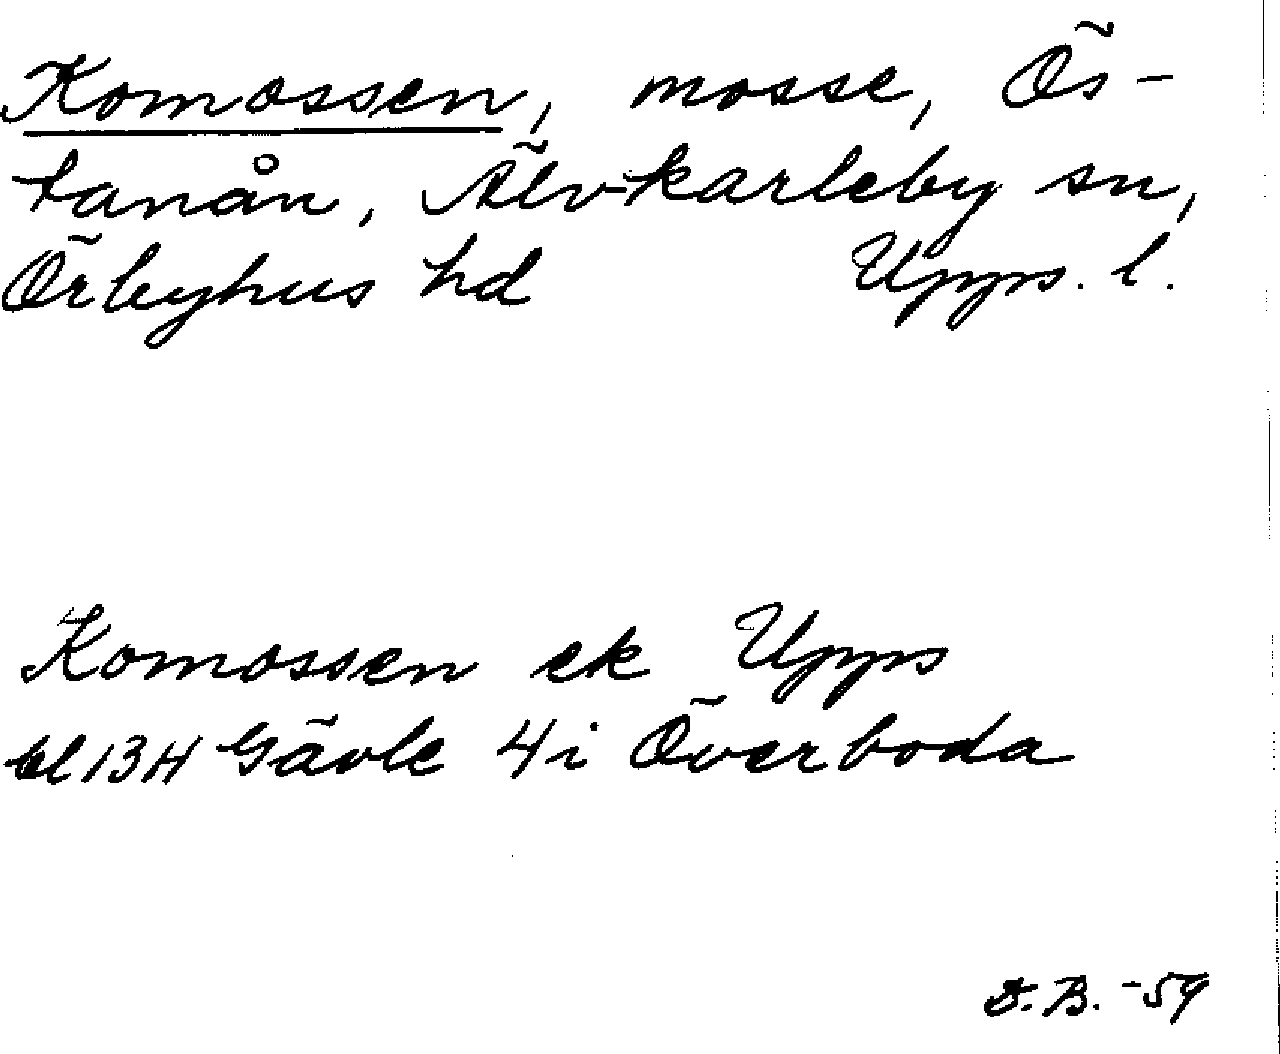 Komossen, mosse, Ös-
tanån, Älvkarleby sn,
Örbyhus hd Upps. l.
Komossen ek Upps
bl 13H Gävle 4i Överboda
B. -59